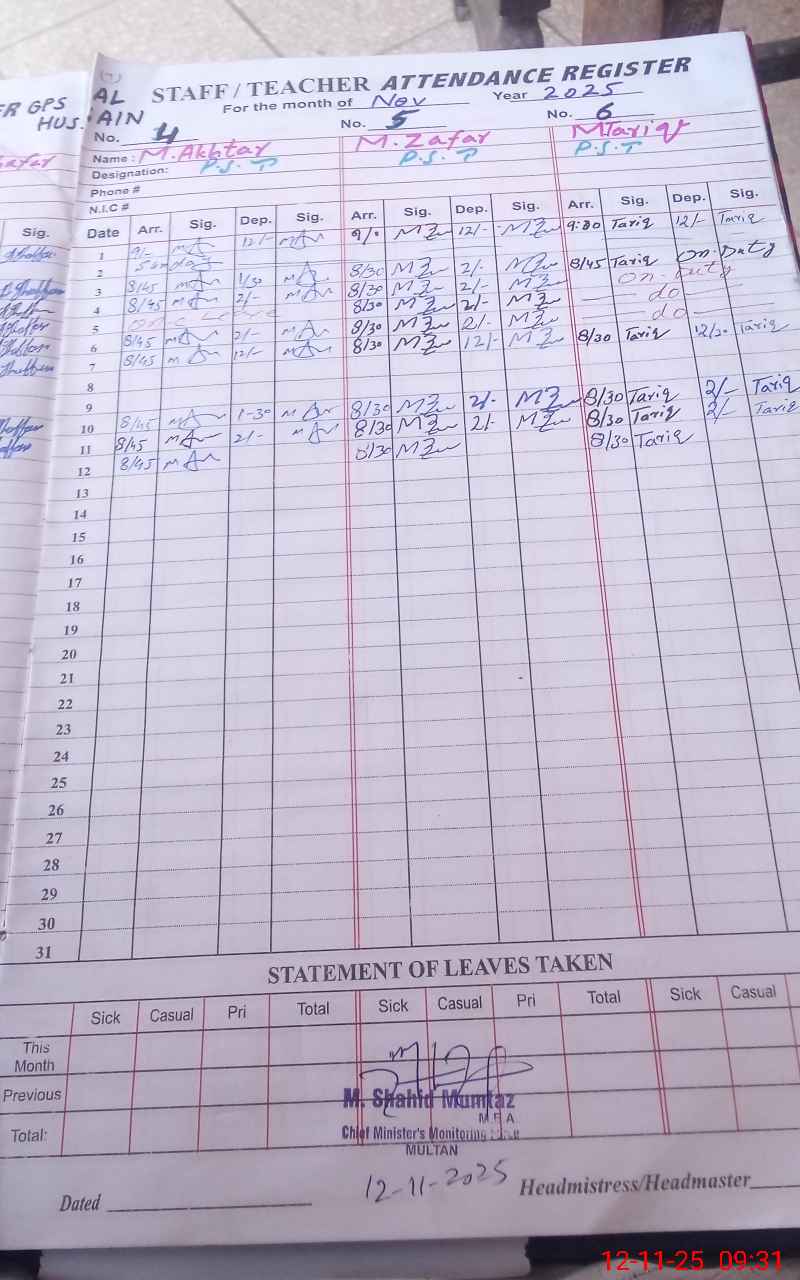 ER GPS AL STAFF/TEACHER ATTENDANCE REGISTER
HUS:AIN For the month of Nov Year 2025
No. 4 No. 5 No. 6
Name : M.Akhtar M.Zafar MTariq
Designation: P.S.T P.S.T P.S.T
Phone #
N.I.C #
Sig. Date Arr. Sig. Dep. Sig. Arr. Sig. Dep. Sig. Arr. Sig. Dep. Sig.
1 9/- 12/- 9/0 12/- 9:00 Tariq 12/- Tariq
2 Sunday
3 8/45 1/30 8/30 2/- 8/45 Tariq On-Duty
4 8/45 2/- 8/30 2/- On-Duty
5 Leave 8/30 2/- do
6 8/45 2/- 8/30 2/- do
7 8/45 12/- 8/30 12/- 8/30 Tariq 12/30 Tariq
8
9
10 8/45 1-30 8/30 2/- 8/30 Tariq 2/- Tariq
11 8/45 2/- 8/30 2/- 8/30 Tariq 2/- Tariq
12 8/45 8/30 8/30 Tariq
13
14
15
16
17
18
19
20
21
22
23
24
25
26
27
28
29
30
31
STATEMENT OF LEAVES TAKEN
Sick Casual Pri Total Sick Casual Pri Total Sick Casual
This Month
Previous
Total:
M. Shahid Mumtaz
M.E.A.
Chief Minister's Monitoring
MULTAN
12-11-2025
Dated Headmistress/Headmaster
12-11-25 09:31